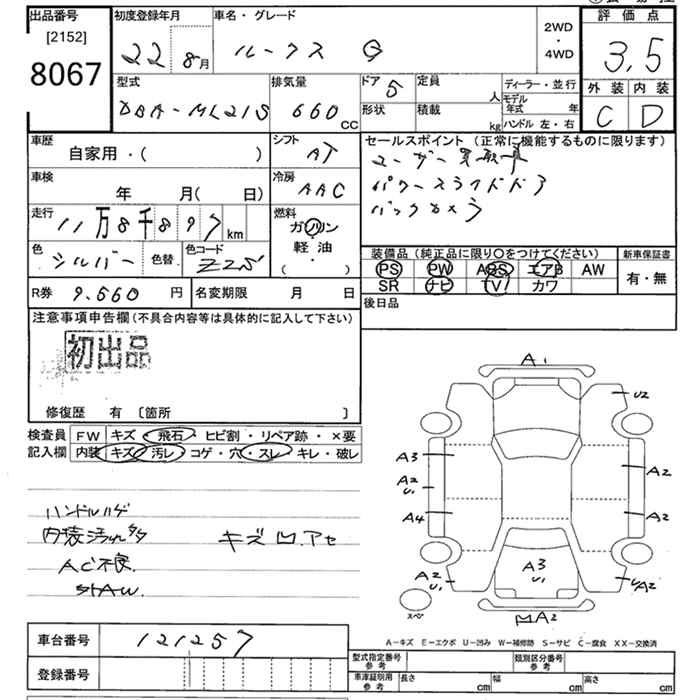 出品番号 初度登録年月 車名・グレード 2WD・4WD 評価点
[2152]
8067
22 8月 ルークス G 3,5
型式 排気量 ドア 5 定員 人 ディーラー・並行 外装 内装
DBA-ML21S 660 CC 形状 積載 kg モデル年式 年 ハンドル 左・右 C D
車歴 シフト セールスポイント (正常に機能するものに限ります)
自家用・( ) AT ユーザー買取車
車検 年 月( 日) 冷房 AAC パワースライドドア
走行 11万8千897km 燃料 ガソリン 軽油・( ) バックカメラ
色 シルバー 色替 色コード Z25 装備品 (純正品に限り〇をつけてください) 新車保証書
PS PW ABS エアB AW 有・無
R券 9.660円 名変期限 月 日 SR ナビ TV カワ
注意事項申告欄(不具合内容等は具体的に記入して下さい) 後日品
初出品
修復歴 有 〔箇所 〕
検査員 FW キズ・飛石・ヒビ割・リペア跡・×要
記入欄 内装 キズ・汚レ・コゲ・穴・スレ・キレ・破レ
ハンドルハゲ
内装汚れ キズ凹.アセ
AC不良
A1
U2
A3
A2
A2
U1
A4
A2
A2
U1
A3
U1
A2
スペア
A2
A−キズ E−エクボ U−凹み W−補修跡 S−サビ C−腐食 XX−交換済
車台番号 121257
登録番号
型式指定番号 参考 類別区分番号 参考
車庫証明用 参考 長さ cm 幅 cm 高さ cm